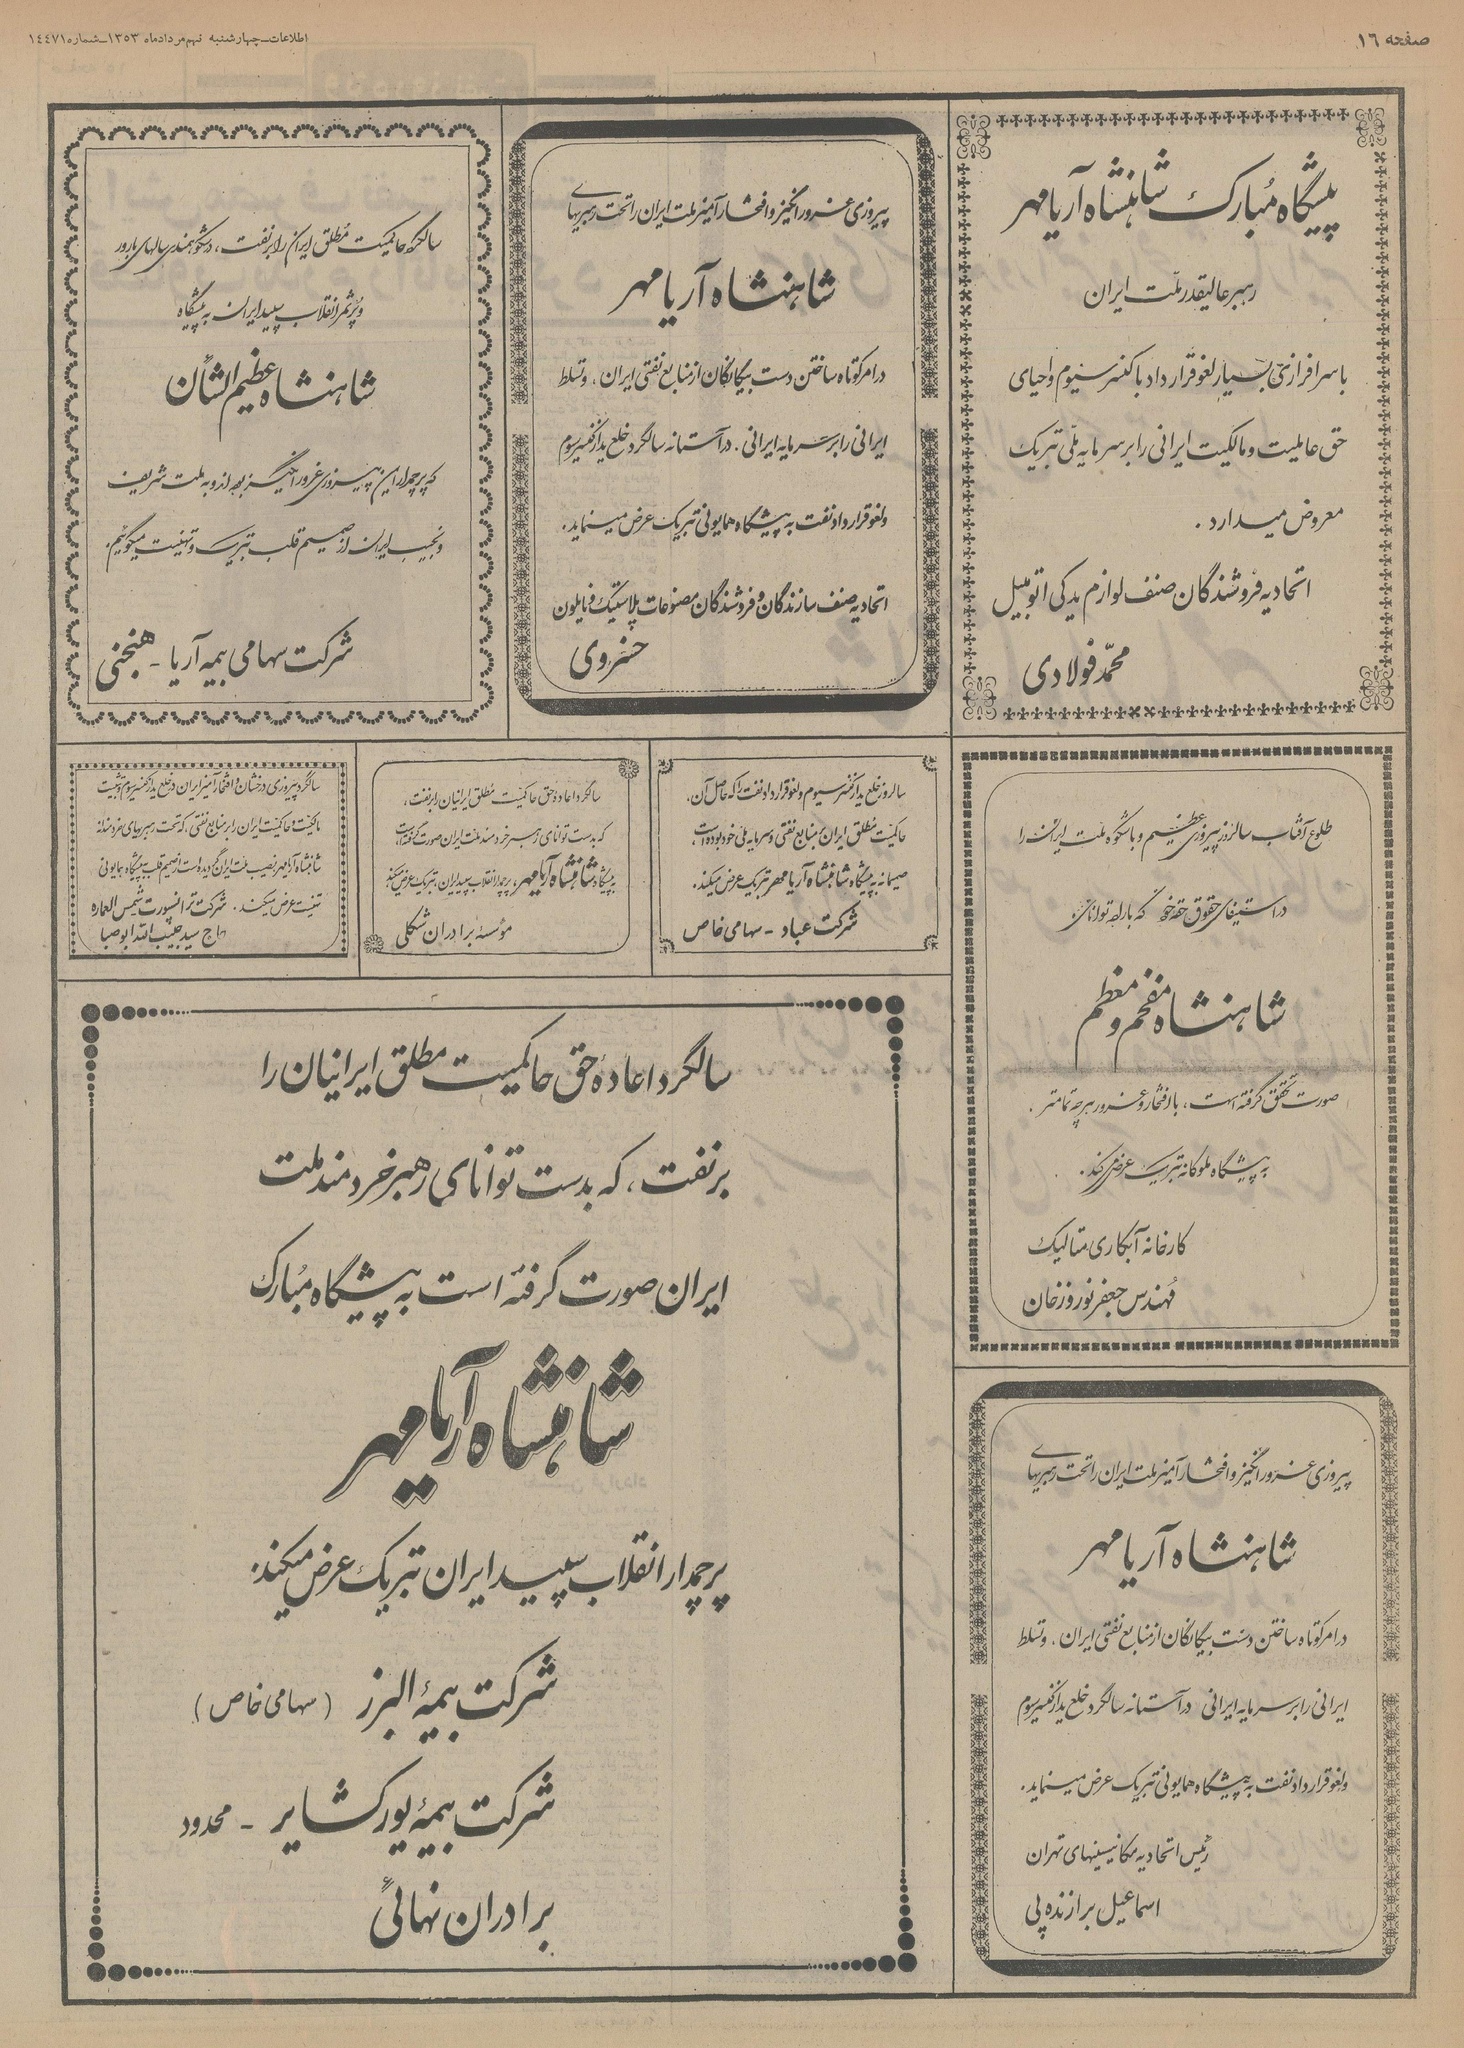 صفحه ۱٦
اطلاعات_چهارشنبه نهم مردادماه ۱۳۵۳_شماره ۱٤٤۷۱
پیشگاه مبارک شاهنشاه آریامهر
رهبر عالیقدر ملت ایران
با سرافرازی بسیار لغو قرارداد با کنسرسیوم و احیای
حق عاملیت و مالکیت ایرانی را بر سرمایه ملی تبریک
معروض میدارد .
اتحادیه فروشندگان صنف لوازم یدکی اتومبیل
محمد فولادی
پیروزی غرورانگیز و افتخارآمیز ملت ایران را تحت رهبریهای
شاهنشاه آریامهر
در امر کوتاه ساختن دست بیگانگان از منابع نفتی ایران ، و تسلط
ایرانی را بر سرمایه ایرانی . در آستانه سالگرد خلع ید از کنسرسیوم
و لغو قرارداد نفت به پیشگاه همایونی تبریک عرض مینماید .
اتحادیه صنف سازندگان و فروشندگان مصنوعات پلاستیک و نایلون
خسروی
سالگرد حاکمیت مطلق ایران را بر نفت ، در شکوهمندی سالهای بارور
و پرثمر انقلاب سپید ایران به پیشگاه
شاهنشاه عظیم الشأن
که پرچمدار این پیروزی غرورانگیز بوده‌اند و به ملت شریف
و نجیب ایران از صمیم قلب تبریک و تهنیت میگوئیم .
شرکت سهامی بیمه آریا - هنجنی
طلوع آفتاب سالروز پیروزی عظیم و باشکوه ملت ایران را
در استیفای حقوق حقه خود که با راهبه توانای
شاهنشاه مفخم و معظم
صورت تحقق گرفته است ، با افتخار و غرور هر چه تمامتر .
به پیشگاه ملوکانه تبریک عرض می‌کند .
کارخانه آبکاری متالیک
مهندس جعفر نوروزخان
سالروز خلع ید از کنسرسیوم و لغو قرارداد نفت را که حاصل آن ،
حاکمیت مطلق ایران بر منابع نفتی و سرمایه ملی خود بوده است ،
صمیمانه به پیشگاه شاهنشاه آریامهر تبریک عرض میکند .
شرکت عباد - سهامی خاص
سالگرد اعاده حق حاکمیت مطلق ایرانیان را بر نفت ،
که بدست توانای رهبر خردمند ملت ایران صورت گرفته است
به پیشگاه شاهنشاه آریامهر، پرچمدار انقلاب سپید ایران، تبریک عرض میکند .
مؤسسه برادران شکلی
سالگرد پیروزی درخشان و افتخارآمیز ایران در خلع ید از کنسرسیوم و تثبیت
مالکیت و حاکمیت ایران را بر منابع نفتی ، که تحت رهبریهای خردمندانه
شاهنشاه آریامهر نصیب ملت ایران گردیده است از صمیم قلب به پیشگاه همایونی
تهنیت عرض میکند . شرکت ترانسپورت شمس العماره
حاج سید حبیب الله ابوصبا
سالگرد اعادهٔ حق حاکمیت مطلق ایرانیان را
بر نفت ، که بدست توانای رهبر خردمند ملت
ایران صورت گرفته است به پیشگاه مبارک
شاهنشاه آریامهر
پرچمدار انقلاب سپید ایران تبریک عرض میکند .
شرکت بیمهٔ البرز ( سهامی خاص )
شرکت بیمهٔ یورکشایر - محدود
برادران نهائی
پیروزی غرورانگیز و افتخارآمیز ملت ایران را تحت رهبریهای
شاهنشاه آریامهر
در امر کوتاه ساختن دست بیگانگان از منابع نفتی ایران ، و تسلط
ایرانی را بر سرمایه ایرانی در آستانه سالگرد خلع ید از کنسرسیوم
و لغو قرارداد نفت به پیشگاه همایونی تبریک عرض مینماید .
رئیس اتحادیه مکانیسینهای تهران
اسماعیل برازنده پی